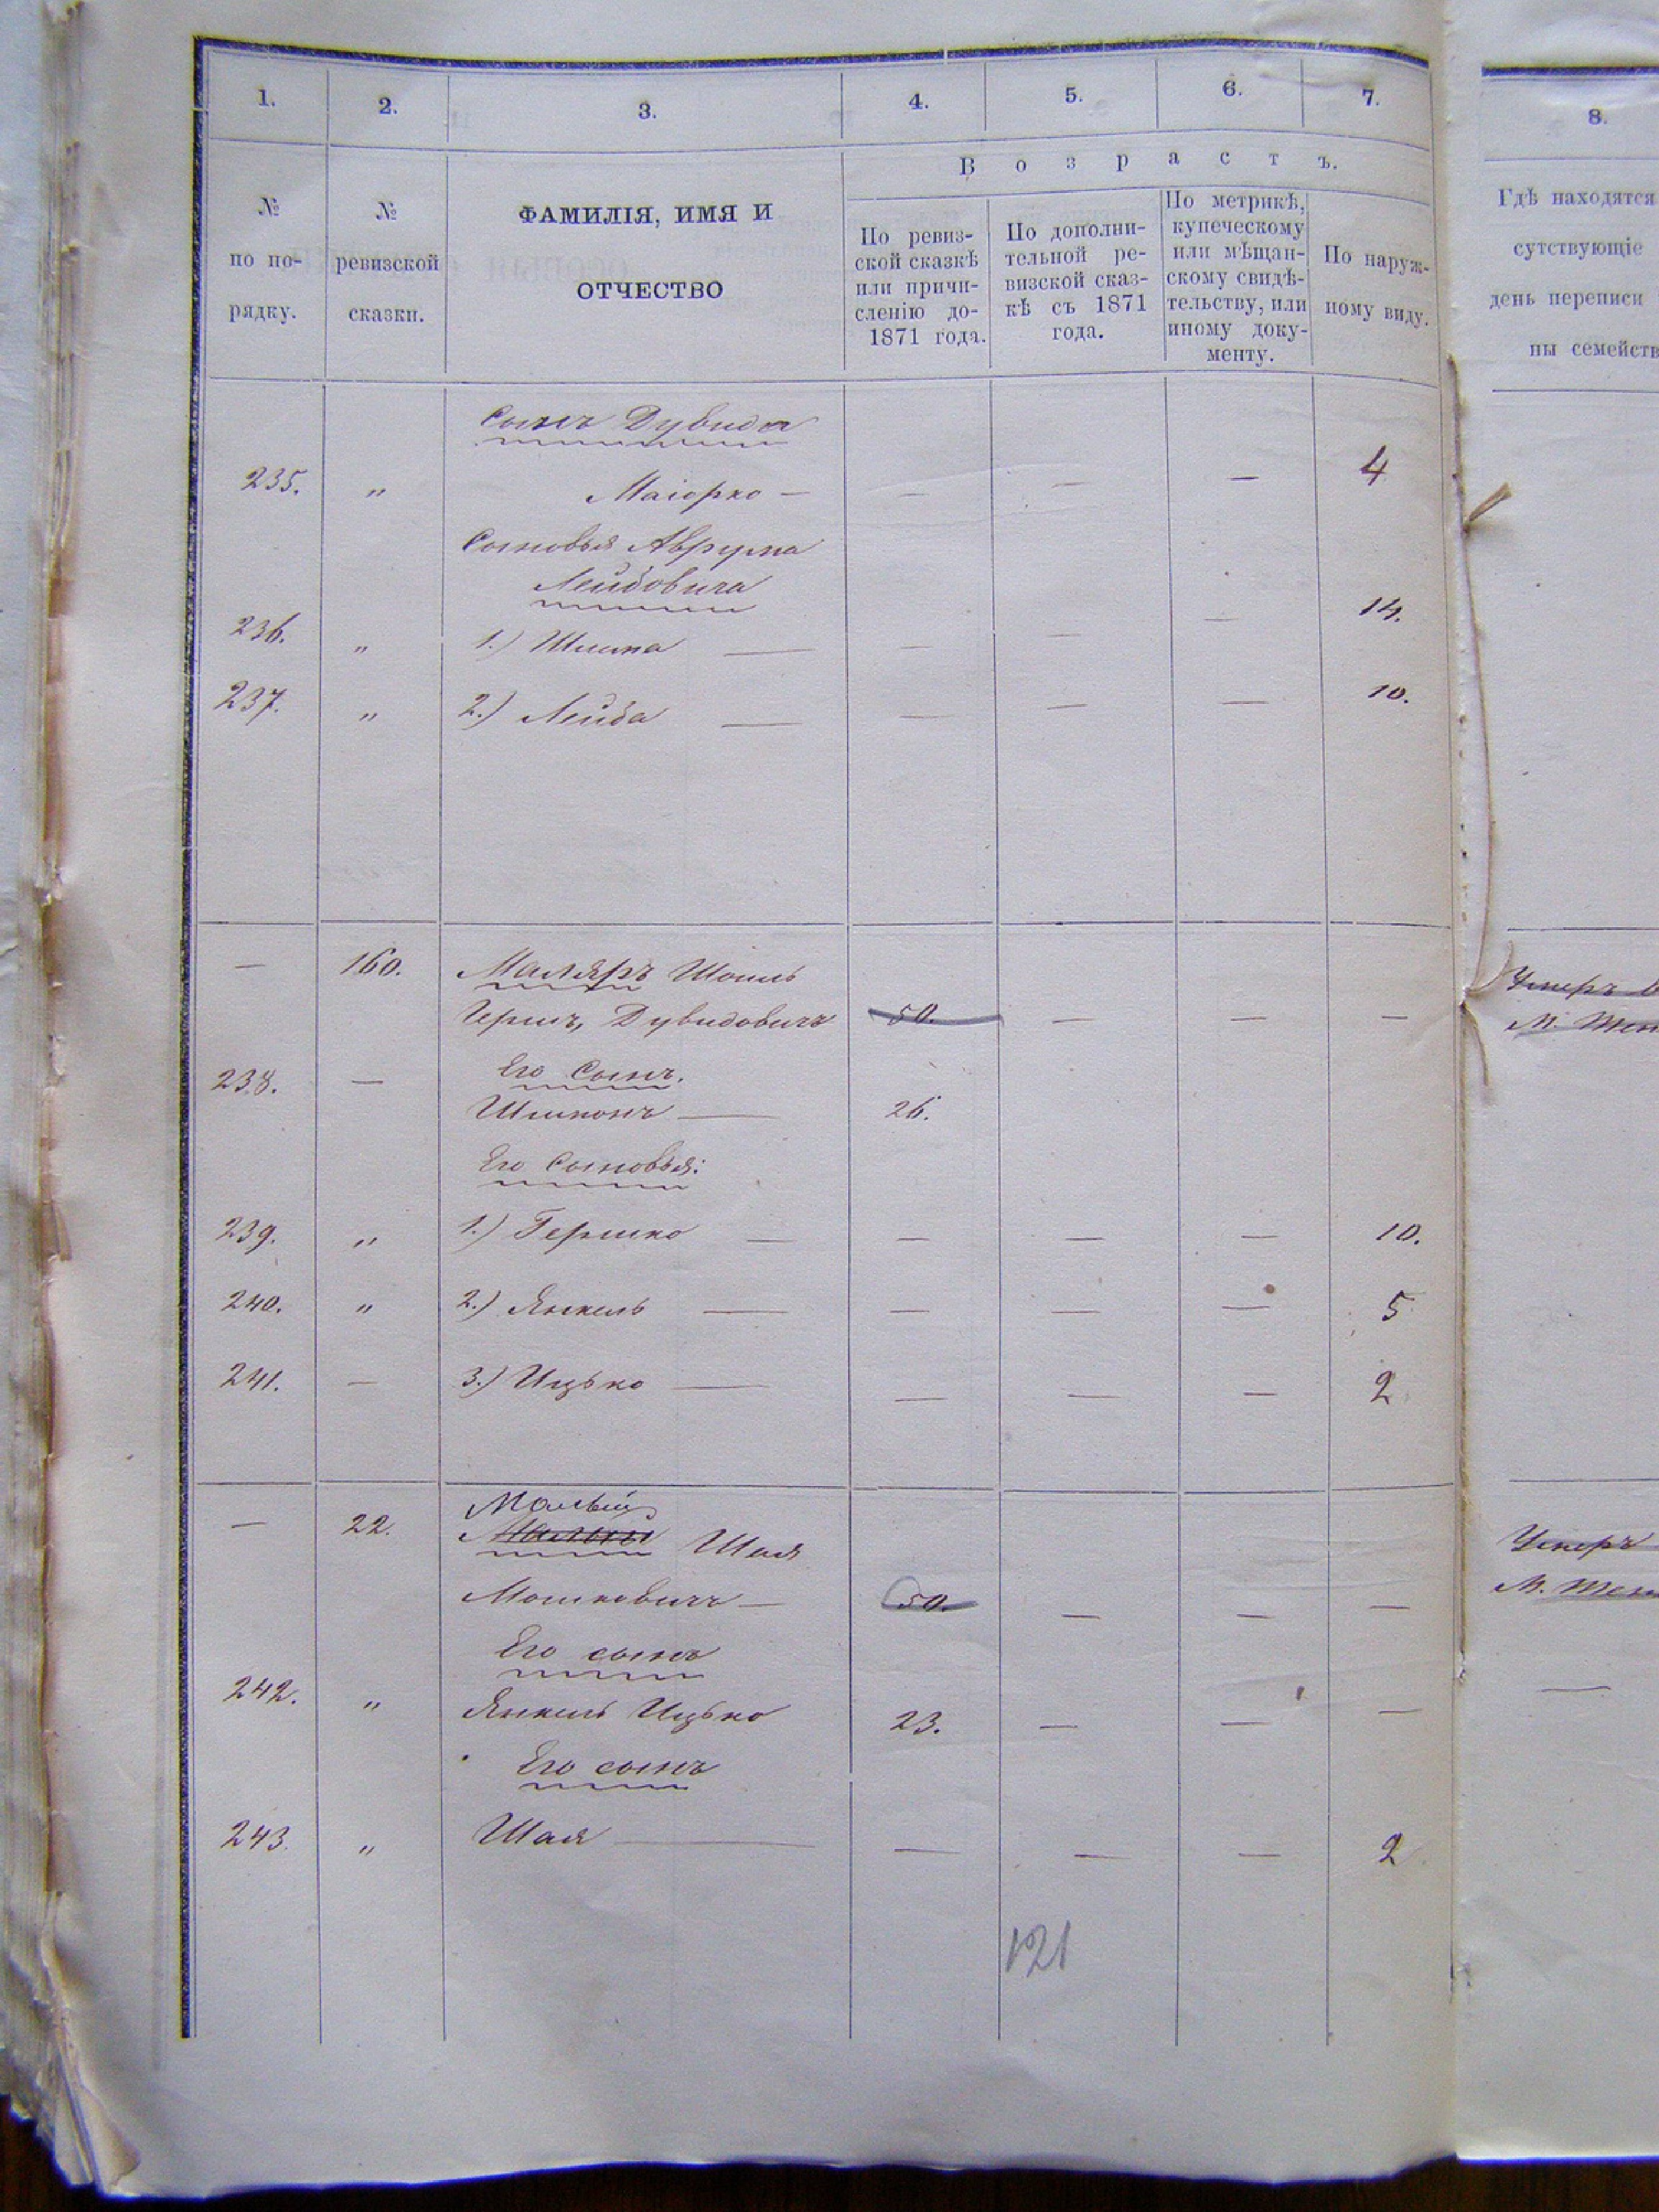 1. 2. 3. 4. 5. 6. 7. 8.
Возрастъ.
№ по порядку.
№ ревизской сказки.
ФАМИЛІЯ, ИМЯ И
ОТЧЕСТВО
По ревиз-
ской сказкѣ
или причи-
сленію до-
1871 года.
По дополни-
тельной ре-
визской сказ-
кѣ съ 1871
года.
По метрикѣ,
купеческому
или мѣщан-
скому свидѣ-
тельству, или
иному доку-
менту.
По наруж-
ному виду.
Гдѣ находятся
сутствующіе
день переписи
ны семейств
Сынъ Дувида
235. " Маіорко — — — — 4
Сыновья Аврума
Лейбовича
236. " 1.) Шлима — — — — 14.
237. " 2.) Лейба — — — — 10.
— 160. Маляръ Шоилъ
Герш, Дувидовичъ 50. — — —
Умеръ
М.
Его Сынъ.
238. — Шимонъ — 26.
Его Сыновья:
239. " 1.) Гершко — — — — 10.
240. " 2.) Янкель — — — — 5
241. — 3.) Ицько — — — — 2
Малый
— 22. Малый Шая
Мошковичъ — 50. — — —
Умеръ
М.
Его сынъ
242. " Янкель Ицько 23. — — — —
Его сынъ
243. " Шая — — — — 2
121